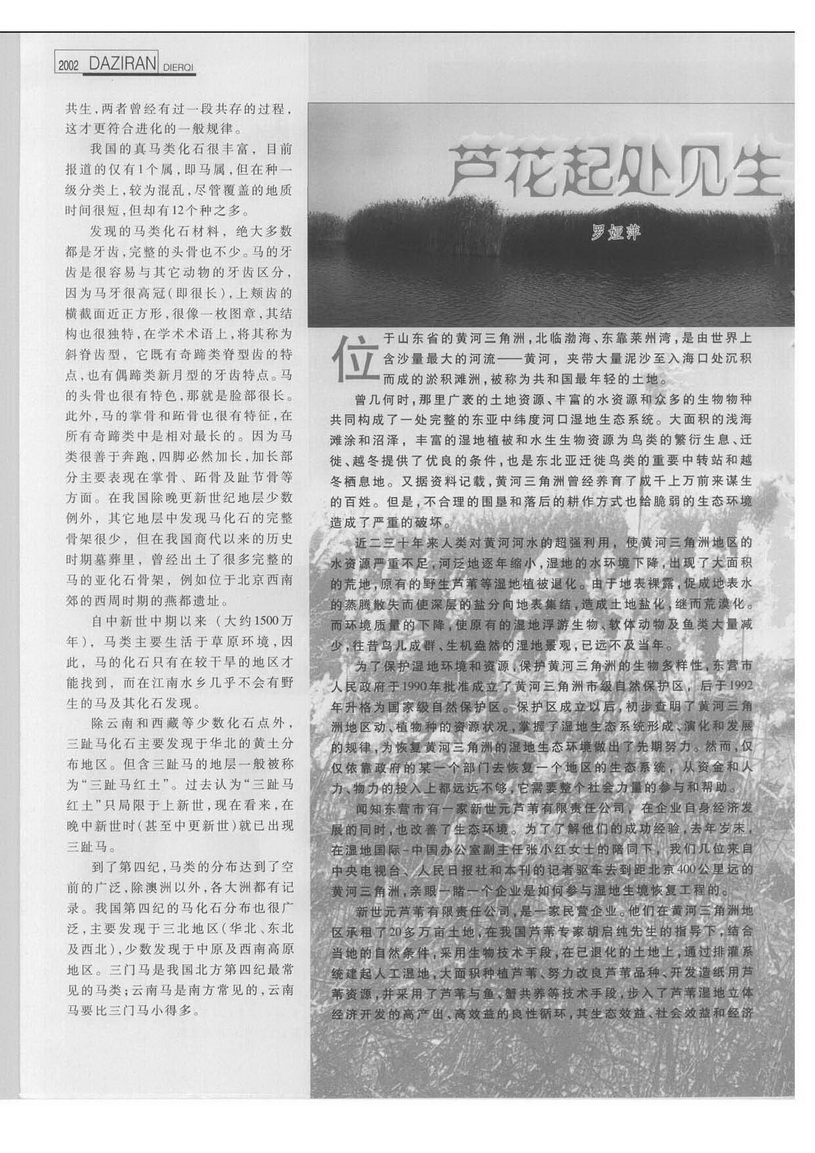 2002 DAZIRAN DIERQI
共生,两者曾经有过一段共存的过程,
这才更符合进化的一般规律。
我国的真马类化石很丰富，目前
报道的仅有1个属,即马属,但在种一
级分类上,较为混乱,尽管覆盖的地质
时间很短,但却有12个种之多。
发现的马类化石材料，绝大多数
都是牙齿,完整的头骨也不少。马的牙
齿是很容易与其它动物的牙齿区分,
因为马牙很高冠(即很长),上颊齿的
横截面近正方形,很像一枚图章,其结
构也很独特,在学术术语上,将其称为
斜脊齿型，它既有奇蹄类脊型齿的特
点,也有偶蹄类新月型的牙齿特点。马
的头骨也很有特色,那就是脸部很长。
此外,马的掌骨和跖骨也很有特征,在
所有奇蹄类中是相对最长的。因为马
类很善于奔跑,四脚必然加长,加长部
分主要表现在掌骨、跖骨及趾节骨等
方面。在我国除晚更新世纪地层少数
例外，其它地层中发现马化石的完整
骨架很少，但在我国商代以来的历史
时期墓葬里，曾经出土了很多完整的
马的亚化石骨架，例如位于北京西南
郊的西周时期的燕都遗址。
自中新世中期以来（大约1500万
年），马类主要生活于草原环境,因
此，马的化石只有在较干旱的地区才
能找到，而在江南水乡几乎不会有野
生的马及其化石发现。
除云南和西藏等少数化石点外，
三趾马化石主要发现于华北的黄土分
布地区。但含三趾马的地层一般被称
为“三趾马红土”。过去认为“三趾马
红土”只局限于上新世,现在看来,在
晚中新世时(甚至中更新世)就已出现
三趾马。
到了第四纪,马类的分布达到了空
前的广泛,除澳洲以外,各大洲都有记
录。我国第四纪的马化石分布也很广
泛,主要发现于三北地区(华北、东北
及西北),少数发现于中原及西南高原
地区。三门马是我国北方第四纪最常
见的马类;云南马是南方常见的,云南
马要比三门马小得多。
芦花起处见生
罗娅萍
位于山东省的黄河三角洲,北临渤海、东靠莱州湾,是由世界上
含沙量最大的河流——黄河，夹带大量泥沙至入海口处沉积
而成的淤积滩洲,被称为共和国最年轻的土地。
曾几何时,那里广袤的土地资源、丰富的水资源和众多的生物物种
共同构成了一处完整的东亚中纬度河口湿地生态系统。大面积的浅海
滩涂和沼泽，丰富的湿地植被和水生生物资源为鸟类的繁衍生息、迁
徙、越冬提供了优良的条件,也是东北亚迁徙鸟类的重要中转站和越
冬栖息地。又据资料记载,黄河三角洲曾经养育了成千上万前来谋生
的百姓。但是,不合理的围垦和落后的耕作方式也给脆弱的生态环境
造成了严重的破坏。
近二三十年来人类对黄河河水的超强利用，使黄河三角洲地区的
水资源严重不足,河泛地逐年缩小,湿地的水环境下降,出现了大面积
的荒地,原有的野生芦苇等湿地植被退化。由于地表裸露,促成地表水
的蒸腾散失而使深层的盐分向地表集结,造成土地盐化,继而荒漠化。
而环境质量的下降,使原有的湿地浮游生物、软体动物及鱼类大量减
少,往昔鸟儿成群、生机盎然的湿地景观,已远不及当年。
为了保护湿地环境和资源,保护黄河三角洲的生物多样性,东营市
人民政府于1990年批准成立了黄河三角洲市级自然保护区，后于1992
年升格为国家级自然保护区。保护区成立以后,初步查明了黄河三角
洲地区动、植物种的资源状况,掌握了湿地生态系统形成、演化和发展
的规律,为恢复黄河三角洲的湿地生态环境做出了先期努力。然而,仅
仅依靠政府的某一个部门去恢复一个地区的生态系统，从资金和人
力、物力的投入上都远远不够,它需要整个社会力量的参与和帮助。
闻知东营市有一家新世元芦苇有限责任公司，在企业自身经济发
展的同时,也改善了生态环境。为了了解他们的成功经验,去年岁末,
在湿地国际-中国办公室副主任张小红女士的陪同下，我们几位来自
中央电视台、人民日报社和本刊的记者驱车去到距北京400公里远的
黄河三角洲,亲眼一睹一个企业是如何参与湿地生境恢复工程的。
新世元芦苇有限责任公司,是一家民营企业。他们在黄河三角洲地
区承租了20多万亩土地,在我国芦苇专家胡启纯先生的指导下,结合
当地的自然条件,采用生物技术手段,在已退化的土地上,通过排灌系
统建起人工湿地,大面积种植芦苇、努力改良芦苇品种、开发造纸用芦
苇资源,并采用了芦苇与鱼,蟹共养等技术手段,步入了芦苇湿地立体
经济开发的高产出、高效益的良性循环,其生态效益、社会效益和经济